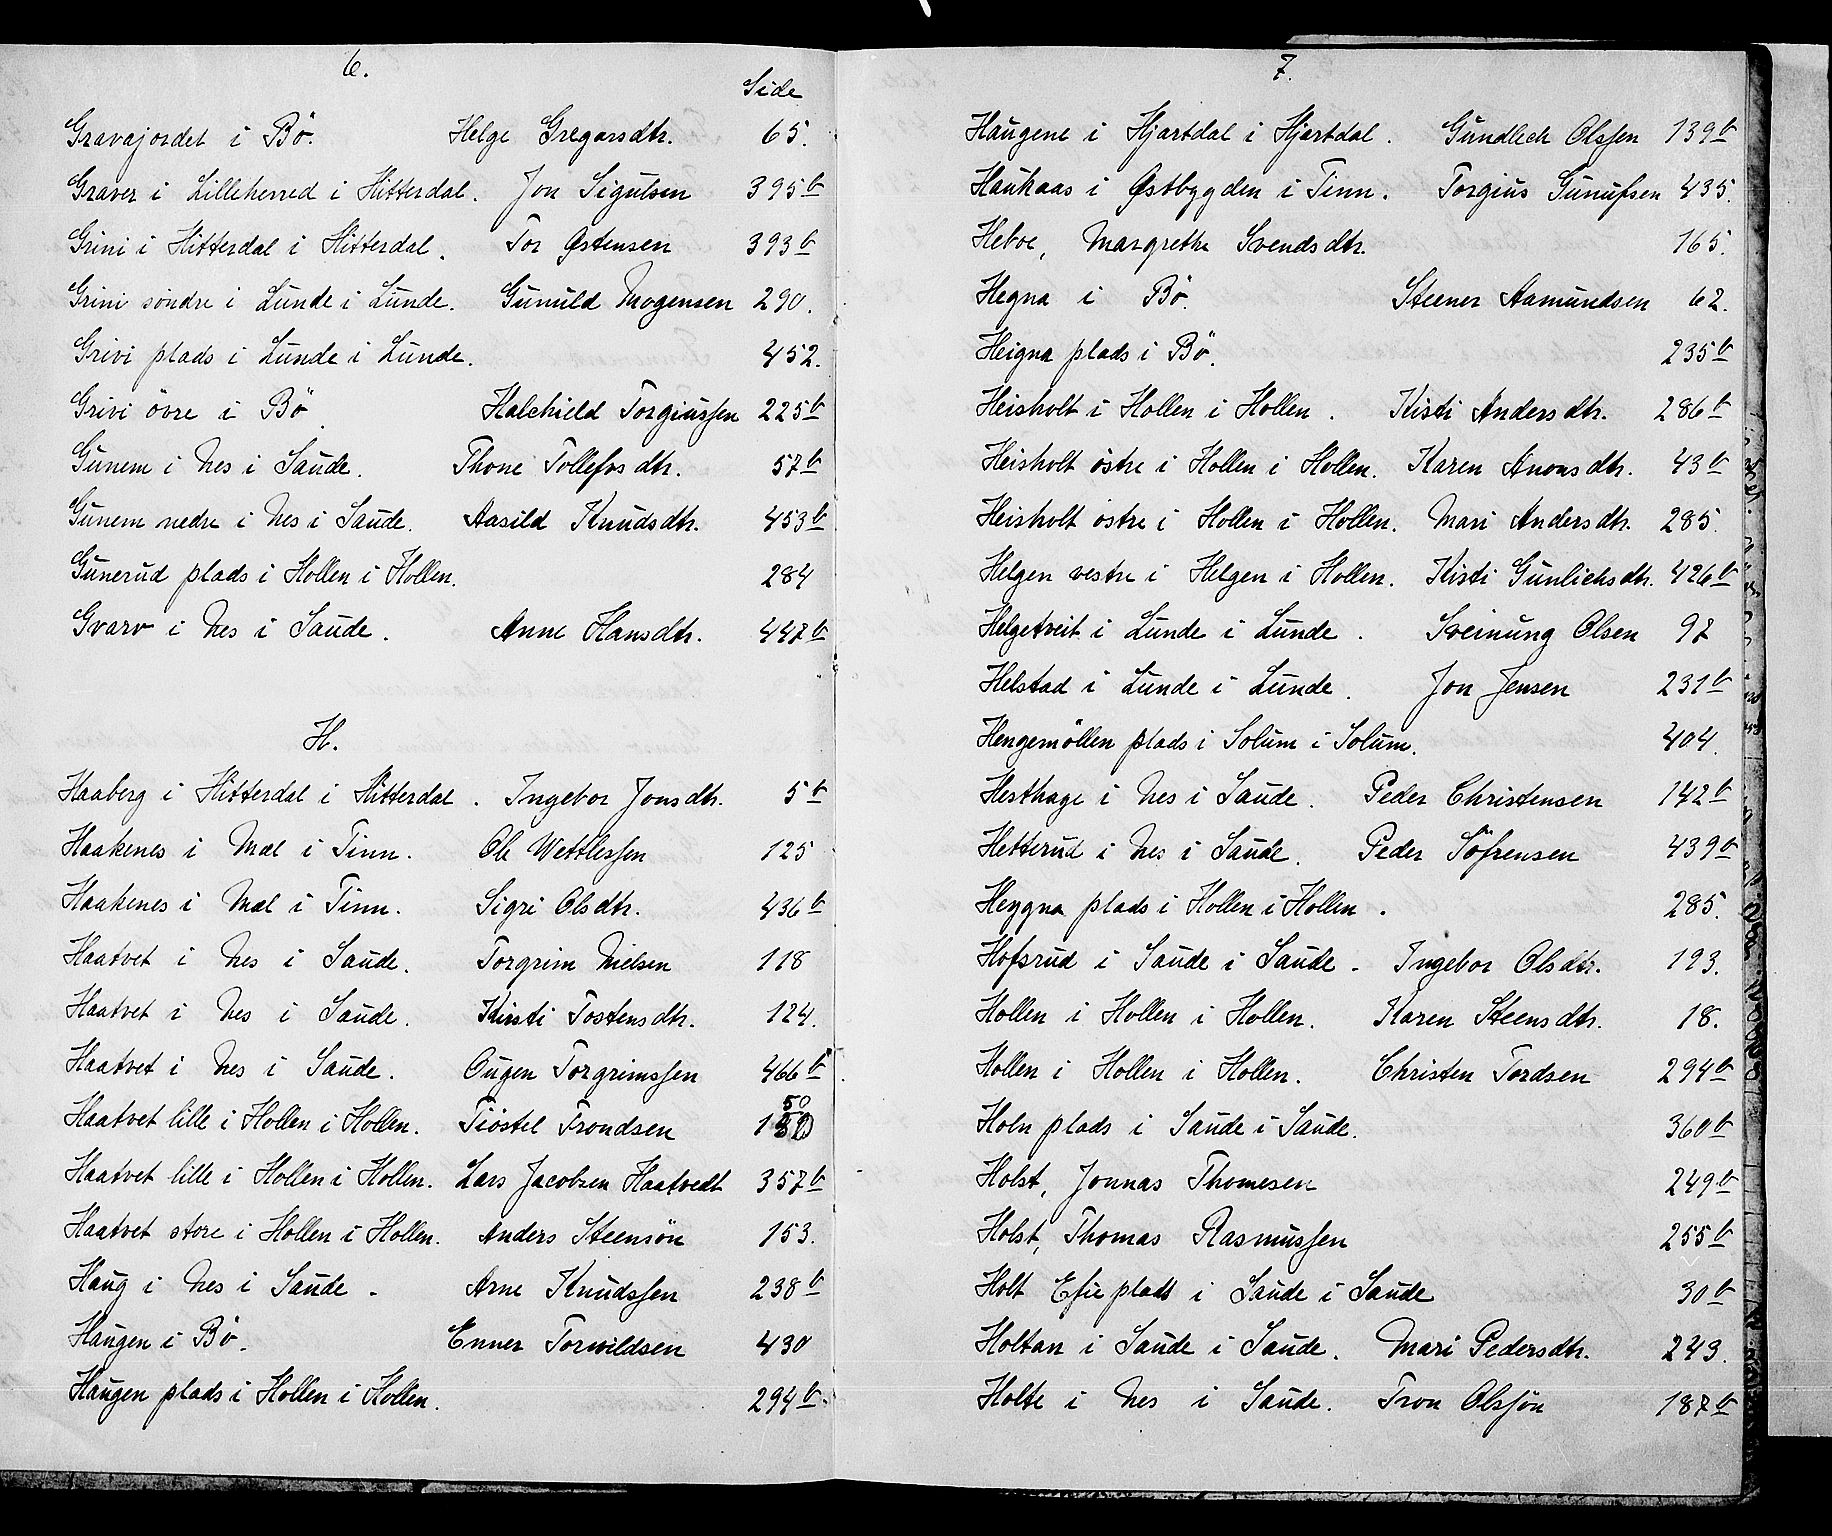 6.
Side
Gravajordet i Bö. Helge Gregarsdtr. 65.
Graver i Lilleherred i Hitterdal. Jon Sigulsen 395b
Grini i Hitterdal i Hitterdal. Tor Østensen 393b
Grini söndre i Lunde i Lunde. Gunuld Mogensen 290.
Grivi plads i Lunde i Lunde. 452.
Grivi övre i Bö Halchield Torgiussen 225b
Gunem i Nes i Saude. Thone Tollefosdtr. 57b
Gunem nedre i Nes i Saude. Aasild Knudsdtr. 453b
Gunerud plads i Hollen i Hollen. 284
Gvarv i Nes i Saude. Anne Hansdtr. 447b
H.
Haaberg i Hitterdal i Hitterdal. Ingebor Jonsdtr. 5b
Haakenes i Mæl i Tinn. Ole Wettlessen 125
Haakenes i Mæl i Tinn. Sigri Olsdtr. 436b
Haatvet i Nes i Saude. Torgrim Nielsen 118
Haatvet i Nes i Saude. Kirsti Tostensdtr. 124.
Haatvet i Nes i Saude. Ougen Torgrimssen 466b
Haatvet lille i Hollen i Hollen. Tiöstel Trondsen 150
Haatvet lille i Hollen i Hollen. Lars Jacobsen Haatvedt 357b
Haatvet store i Hollen i Hollen. Anders Steensön 153.
Haug i Nes i Saude. Arne Knudssen 238b
Haugen i Bö. Enner Torvildsen 430
Haugen plads i Hollen i Hollen. 294b
7.
Haugene i Hjartdal i Hjartdal. Gundlech Olssen 139b
Haukaas i Østbygden i Tinn. Torgius Gunufsen 435.
Heboe, Margrethe Svendsdtr. 165.
Hegna i Bö. Steener Aamundsen 62.
Heigna plads i Bö. 235b
Heisholt i Hollen i Hollen. Kisti Andersdtr. 286b
Heisholt östre i Hollen i Hollen. Karen Anonsdtr. 43b
Heisholt östre i Hollen i Hollen. Mari Andersdtr. 285.
Helgen vestre i Helgen i Hollen. Kisti Gunlichsdtr. 426b
Helgetveit i Lunde i Lunde. Sveinung Olsen 97
Helstad i Lunde i Lunde. Jon Jensen 231b
Hengemöllen plads i Solum i Solum. 404.
Hesthage i Nes i Saude. Peder Christensen 142b
Hetterud i Nes i Saude. Peder Söfrensen 439b
Heygna plads i Hollen i Hollen. 285.
Hofsrud i Saude i Saude. Ingebor Olsdtr. 193.
Hollen i Hollen i Hollen. Karen Steensdtr. 18.
Hollen i Hollen i Hollen. Christen Tordsen 294b
Holn plads i Saude i Saude. 360b
Holst, Jonnas Thomesen 249b
Holst, Thomas Rasmussen 255b
Holt Efie plads i Saude i Saude 30b
Holtan i Saude i Saude. Mari Pedersdtr. 243.
Holte i Nes i Saude. Tron Olssön 187b